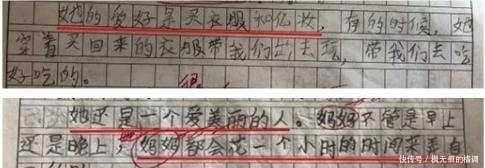 她的爱好是买衣服和化妆，有的时候，她
穿着买回来的衣服带我们出去玩，带我们去吃
好吃的。
她还是一个爱美丽的人。妈妈不管是早上
还是晚上，妈妈都会花一个小时的时间来
快传号/枫无痕的格调